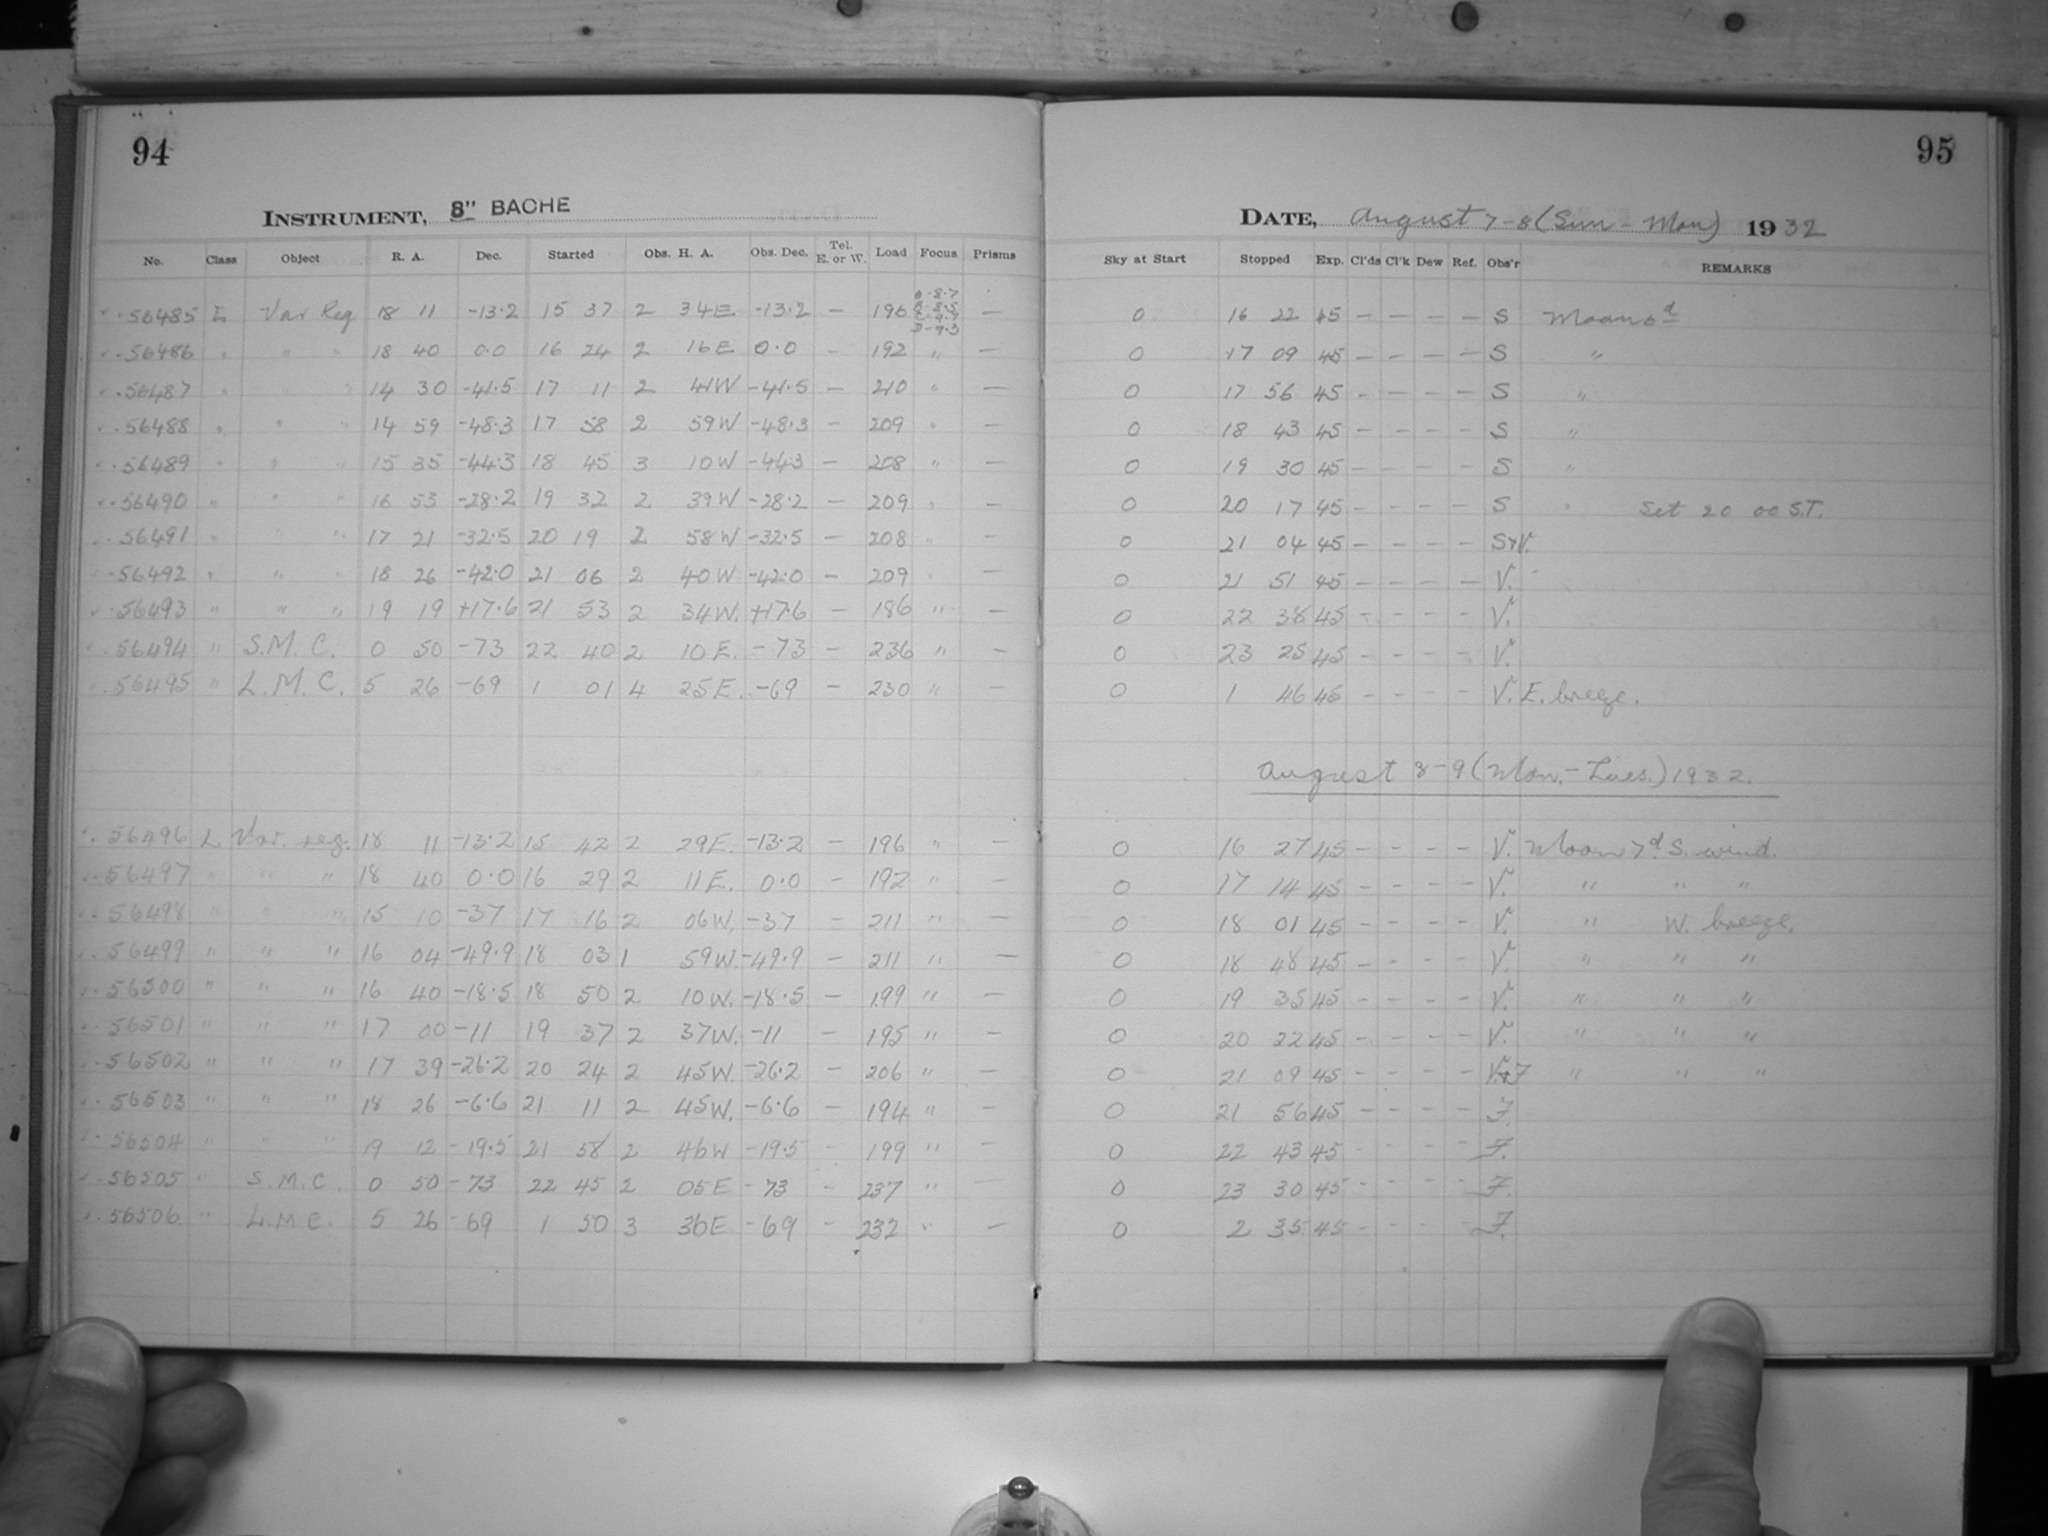 94
INSTRUMENT, 8" BACHE
No. Class Object R. A. Dec. Started Obs. H. A. Obs. Dec. Tel. E. or W. Load Focus Prisms
56485 L Var Reg 18 11 -13.2 15 37 2 34E -13.2 — 196 —
56486 " " " 18 40 0.0 16 24 2 16E 0.0 — 192 " —
56487 " " " 14 30 -41.5 17 11 2 41W -41.5 — 210 " —
56488 " " " 14 59 -48.3 17 58 2 59W -48.3 — 209 " —
56489 " " " 15 35 -44.3 18 45 3 10W -44.3 — 208 " —
56490 " " " 16 53 -28.2 19 32 2 39W -28.2 — 209 " —
56491 " " " 17 21 -32.5 20 19 2 58W -32.5 — 208 " —
56492 " " " 18 26 -42.0 21 06 2 40W -42.0 — 209 " —
56493 " " " 19 19 +17.6 21 53 2 34W. +17.6 — 186 " —
56494 " S.M.C. 0 50 -73 22 40 2 10E. -73 — 236 " —
56495 " L.M.C. 5 26 -69 1 01 4 25E. -69 — 230 " —
56496 L Var. reg. 18 11 -13.2 15 42 2 29E. -13.2 — 196 " —
56497 " " " 18 40 0.0 16 29 2 11E. 0.0 — 192 " —
56498 " " " 15 10 -37 17 16 2 06W. -37 — 211 " —
56499 " " " 16 04 -49.9 18 03 1 59W. -49.9 — 211 " —
56500 " " " 16 40 -18.5 18 50 2 10W. -18.5 — 199 " —
56501 " " " 17 00 -11 19 37 2 37W. -11 — 195 " —
56502 " " " 17 39 -26.2 20 24 2 45W. -26.2 — 206 " —
56503 " " " 18 26 -6.6 21 11 2 45W. -6.6 — 194 " —
56504 " " " 19 12 -19.5 21 58 2 46W -19.5 — 199 " —
56505 " S.M.C. 0 50 -73 22 45 2 05E -73 — 237 " —
56506 " L.M.C. 5 26 -69 1 50 3 36E -69 — 232 " —
95
DATE, August 7-8 (Sun - Mon) 1932
Sky at Start Stopped Exp. Cl'ds Cl'k Dew Ref. Obs'r REMARKS
0 16 22 45 — — — — S Moon 6d
0 17 09 45 — — — — S "
0 17 56 45 — — — — S "
0 18 43 45 — — — — S "
0 19 30 45 — — — — S "
0 20 17 45 — — — — S " Set 20 00 S.T.
0 21 04 45 — — — — S+V.
0 21 51 45 — — — — V.
0 22 38 45 — — — — V.
0 23 25 45 — — — — V.
0 1 46 45 — — — — V. E. breeze.
August 8-9 (Mon. - Tues.) 1932.
0 16 27 45 — — — — V. Moon 7d. S. wind.
0 17 14 45 — — — — V. " " "
0 18 01 45 — — — — V. " W. breeze.
0 18 48 45 — — — — V. " " "
0 19 35 45 — — — — V. " " "
0 20 22 45 — — — — V. " " "
0 21 09 45 — — — — V.+F " " "
0 21 56 45 — — — — F.
0 22 43 45 — — — — F.
0 23 30 45 — — — — F.
0 2 35 45 — — — — F.